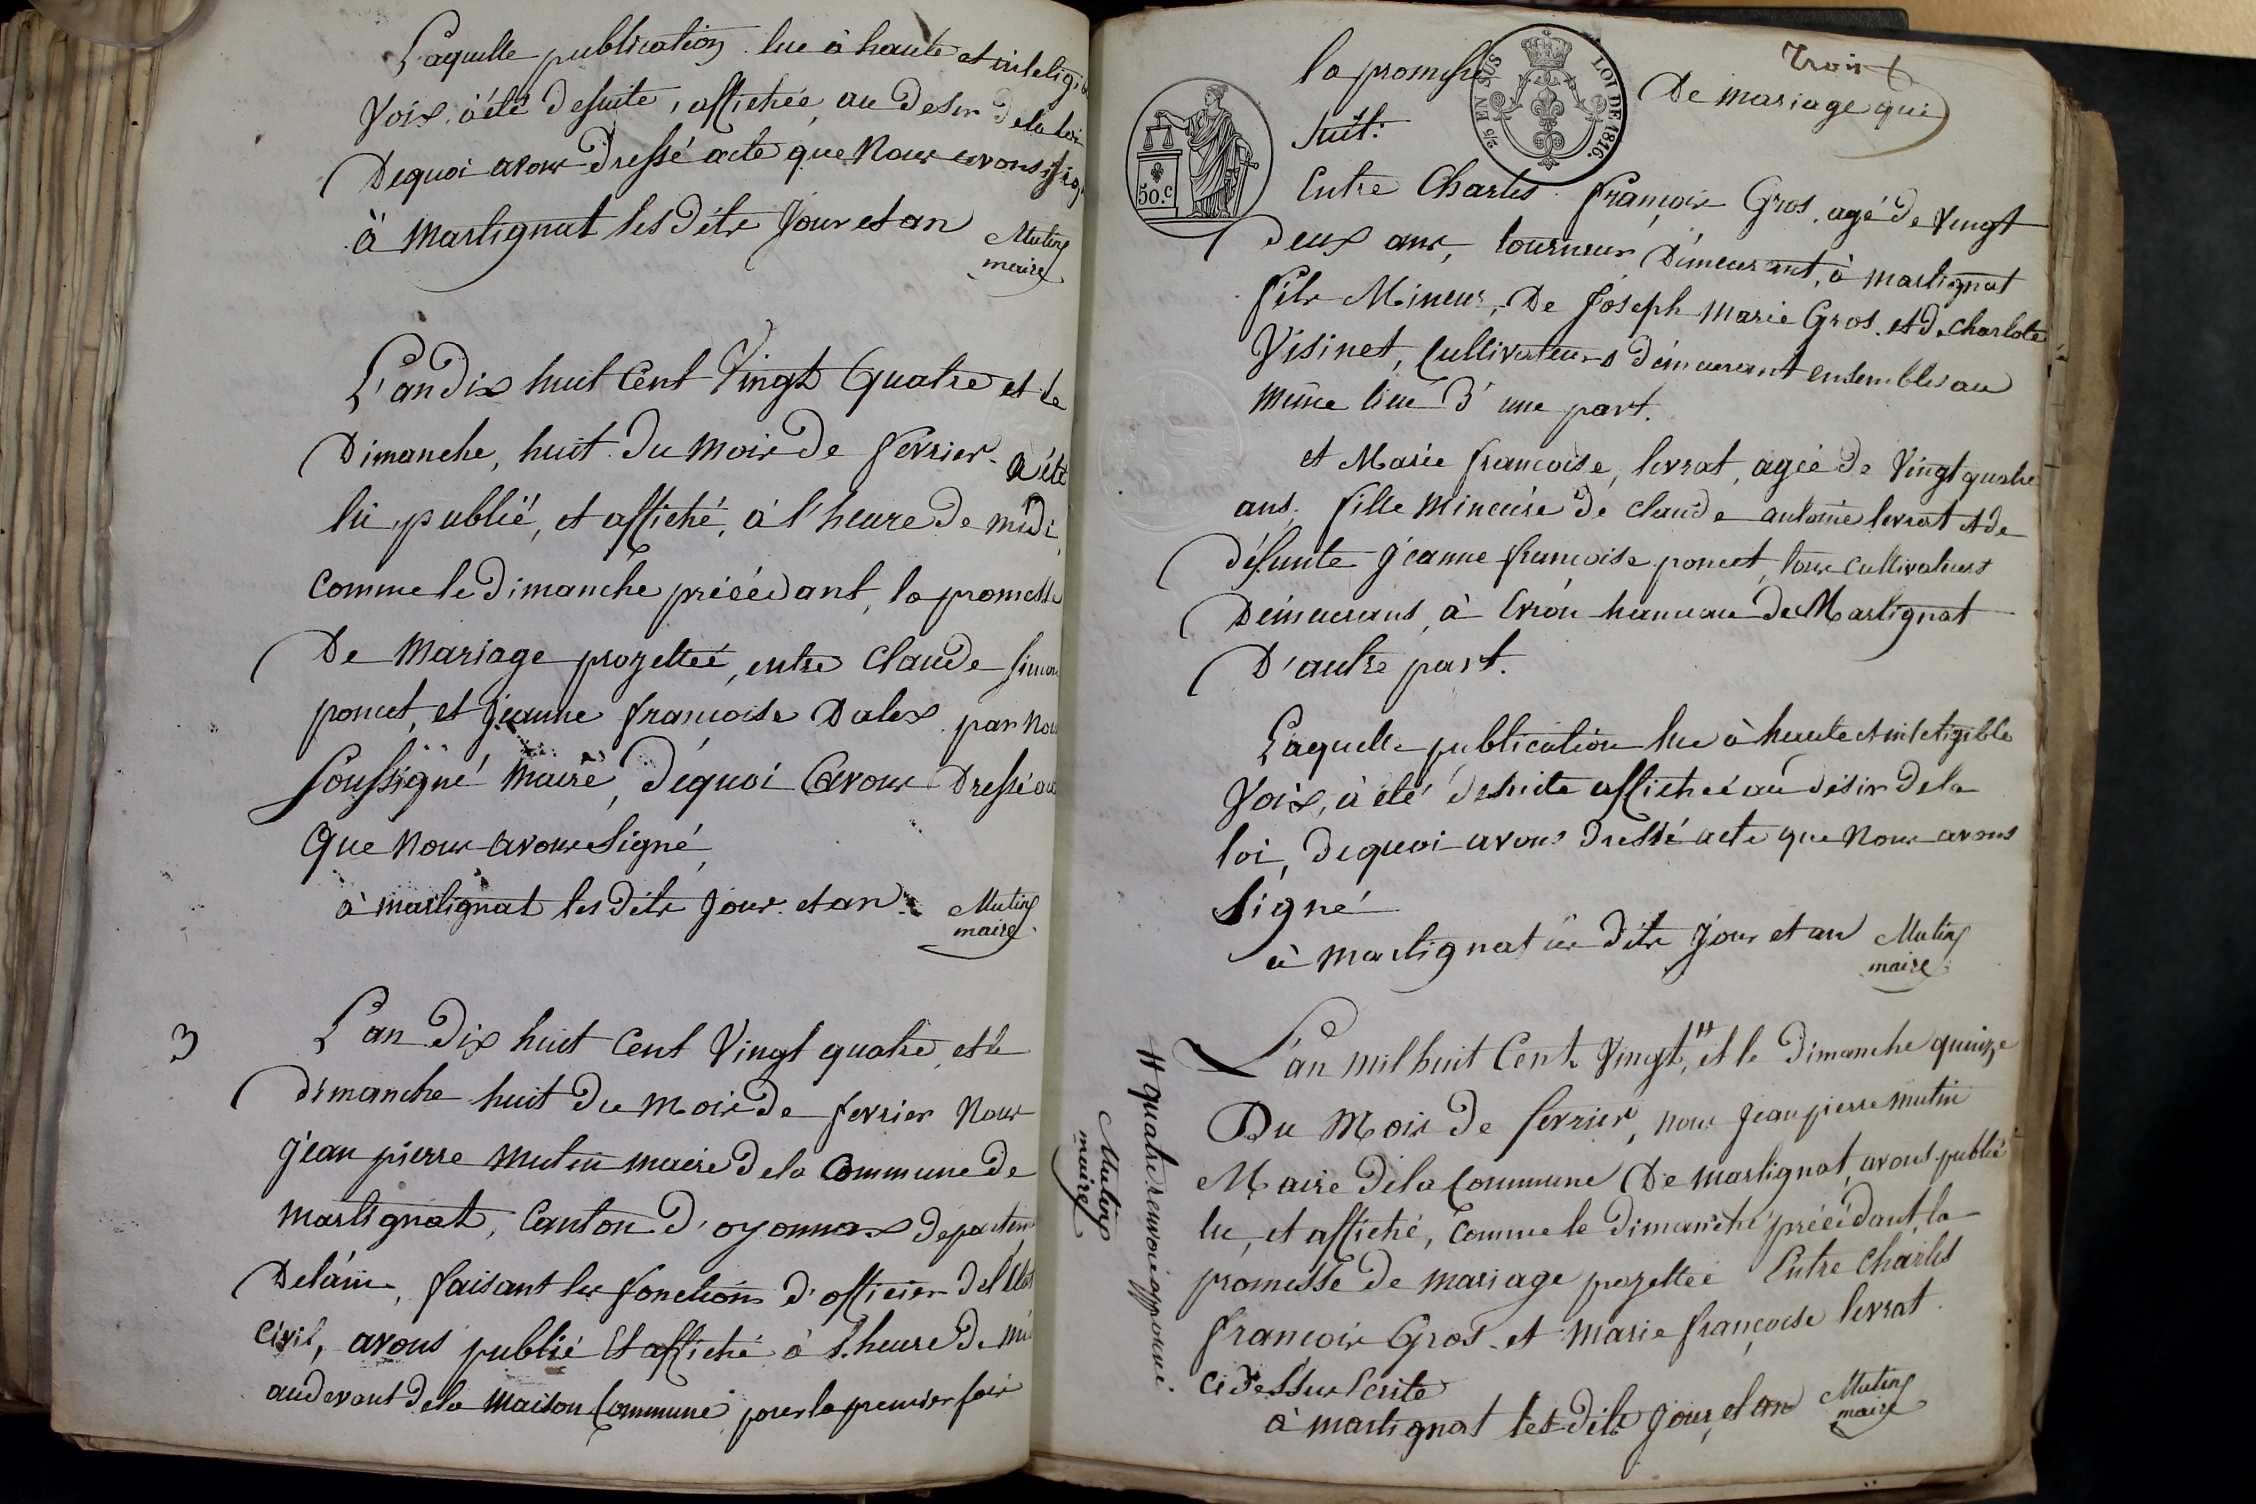 Laquelle publication lue à haute et inteligi
voix, à été desuite, affichée, au desir dela loi
Dequoi avons dressé acte que Nous avons sig
à Martignat les dits jour et an
Mutin
maire
L'an dix huit Cent Vingt Quatre et le
Dimanche, huit du mois de fevrier. a été
lu, publié, et affiché, à l'heure de midi,
comme le Dimanche précédant, la promesse
De Mariage projettée, entre Claude Simon
poncet, et Jeanne francoise Dalex par nou
Soussigné Maire, dequoi avons Dressé ac
Que nous avons Signé,
à martignat les dits jour et an.
Mutin
maire
3
L'an Dix huit Cent Vingt quatre, et le
dimanche huit du mois de fevrier Nous
jean pierre Mutin maire dela Commune de
martignat, Canton d'oyonnax departem
Delain, faisant les fonctions d'officier del'Etat
Civil, avons publié Et affiché à l'heure de mi
audevant dela Maison Commune pour la premier fois
Trois
la promesse De mariage qui
suit:
2/5 EN SUS
LOI DE 1816.
50.c
Entre Charles françois Gros, agé de Vingt
deux ans, tourneur Démeurant, à martignat
fils Mineur, De Joseph Marie Gros. et de charlote
Visinet, Cultivateurs démeurant ensembles au
même lieu D'une part.
et Marie francoise, levrat, agée de Vingt quatre
ans. fille Mineure de claude antoine levrat et de
défunte jeanne francoise poncet, tous cultivateurs
Démeurans, à Evron hameau de Martignat
D'autre part.
Laquelle publication lue à haute et inteligible
Voix, à été desuite affichée au désir dela
loi, dequoi avons dressé acte que Nous avons
Signé
à Martignat les dits jour et an
Mutin
maire
L'an mil huit Cent Vingt, # et le Dimanche quinze
Du Mois de fevrier, nous jean pierre mutin
Maire dela Commune De martignat, avons publié
lu, et affiché, comme le dimanche précédant, la
promesse de mariage projettée Entre Charles
francois Gros. et marie françoise levrat.
ci dessus Ecrite
à martignat les dits jour, et an
Mutin
maire
# quatre renvoi approuvé
Mutin
maire